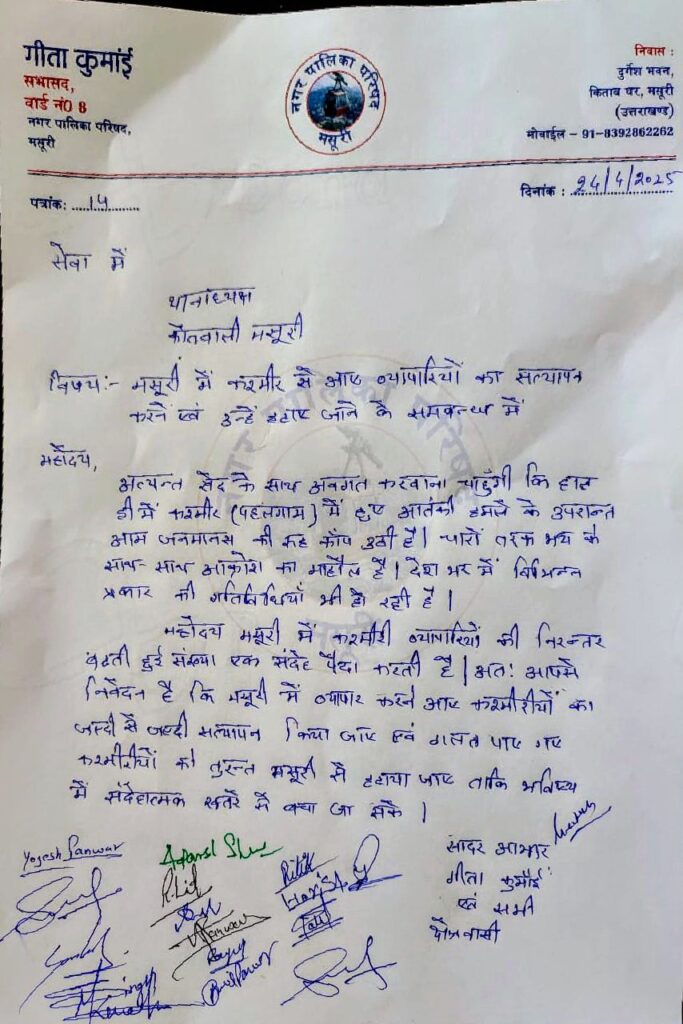 गीता कुमांई
सभासद,
वार्ड नं0 8
नगर पालिका परिषद,
मसूरी
नगर पालिका परिषद
मसूरी
निवास :
दुर्गेश भवन,
किताब घर, मसूरी
(उत्तराखण्ड)
मोबाईल – 91-8392862262
पत्रांक: 14
दिनांक : 24/4/2025
सेवा में
थानाध्यक्ष
कोतवाली मसूरी
विषय:- मसूरी में कश्मीर से आए व्यापारियों का सत्यापन
करने एवं उन्हे हटाए जाने के सम्बन्ध में
महोदय,
अत्यन्त खेद के साथ अवगत करवाना चाहुँगी कि हाल
ही में कश्मीर (पहलगाम) में हुए आतंकी हमले के उपरान्त
आम जनमानस की रूह काँप उठी है। चारों तरफ भय के
साथ-साथ आक्रोश का माहौल है। देश भर में विभिन्न
प्रकार की गतिविधियाँ भी हो रही है।
महोदय मसूरी में कश्मीरी व्यापारियों की निरन्तर
बढती हुई संख्या एक संदेह पैदा करती है। अतः आपसे
निवेदन है कि मसूरी में व्यापार करने आए कश्मीरीयों का
जल्दी से जल्दी सत्यापन किया जाए एवं गलत पाए गए
कश्मीरीयों को तुरन्त मसूरी से हटाया जाए ताकि भविष्य
में संदेहात्मक खतरे से बचा जा सके।
सादर आभार
गीता कुमाँई
एवं सभी
Yogesh Panwar
Ritik